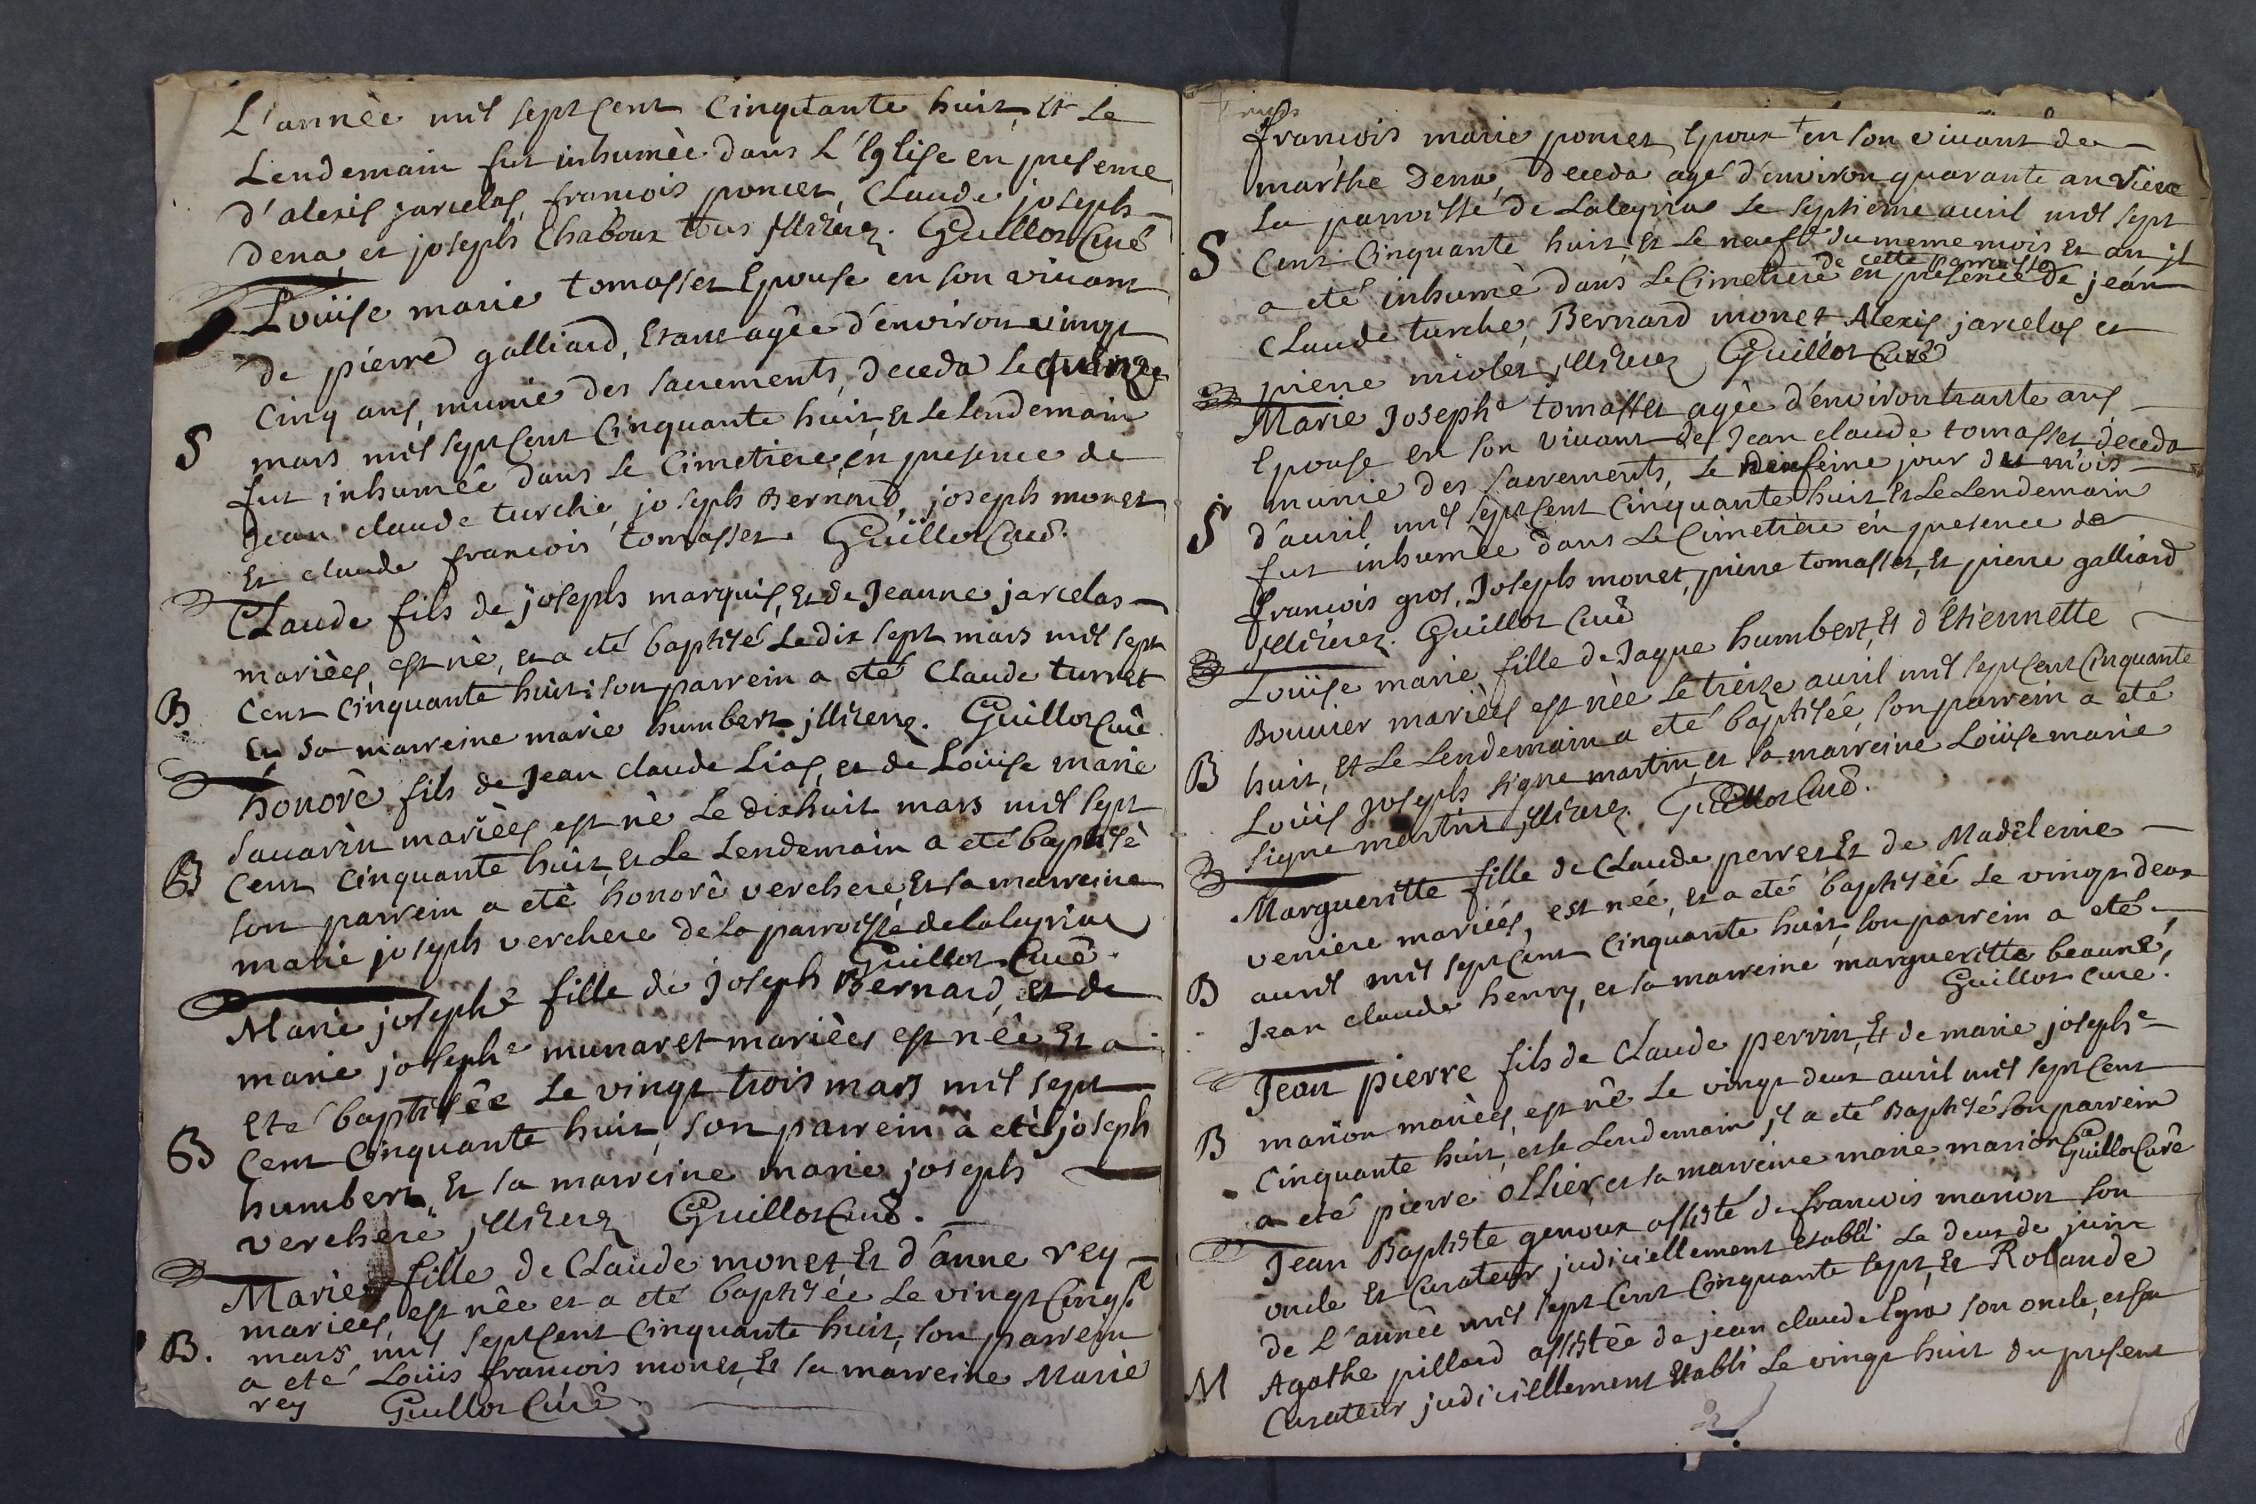 L'année mil sept cent cinquante huit, et le
Lendemain fut inhumèe dans L'Eglise en presence
d'alexis jarcelos, francois poncet, Claude joseph
Dena, et joseph Chaboux tous jlliterez. Guillot Curé
Loüise marie tomasset Epouse en son vivant
de pierre galliard, Etant agèe d'environ vingt
cinq ans, munie des sacrements, deceda le quinze
S mars mil sept cent cinquante huit, et le lendemain
fut inhumèe dans le Cimetiere en presence de
Jean claude turche, joseph Bernard, joseph monet
et claude francois tomasset. Guillot Curé.
Claude fils de joseph marquis, et de Jeanne jarcelos
mariées, est né, et a eté baptisé Le dix sept mars mil sept
B cent cinquante huit; son parrein a eté Claude turret
Et sa marreine marie humbert, jlliterez. Guillot Curé
honoré fils de Jean claude Lias, et de Loüise marie
Savarin mariées est né Le dixhuit mars mil sept
B cent cinquante huit, et Le Lendemain a eté baptisè
son parrein a etè honoré verchere, Et sa marreine
marie joseph verchere de La parroisse de Laleyriat
Guillot Curé.
Marie josephe fille de Joseph Bernard, et de
marie josephe munaret mariées est nèe, Et a
Eté baptisée Le vingt trois mars mil sept
B Cent Cinquante huit, son parrein a etè joseph
humbert, Et sa marreine marie joseph
verchere, jlliterez Guillot Curé.
Marie fille de Claude monet Et d'anne rey
mariées, est nèe et a eté baptisée Le vingt cinq
B. mars mil sept cent cinquante huit, son parrein
a eté Loüis francois monet, Et sa marreine Marie
rey Guillot Curé
francois marie poncet, Epoux en son vivant de
marthe Dena, Deceda agé d'environ quarante an
La parroisse de Laleyriat Le septieme avril mil sept
S Cent Cinquante huit, Et Le neuf du meme mois et an jl
de cette parroisse
a eté inhumé dans Le Cimetiere en presence de jean
Claude turche, Bernard monet, Alexis jarcelos et
pierre niolet, jlliterez Guillot Curé
Marie Josephe tomasset agèe d'environ trante ans
Epouse en son vivant de Jean claude tomasset deceda
munie des sacrements, Le jour du mois
S d'avril mil sept cent cinquante huit Et Le Lendemain
fut inhumèe dans Le Cimetiere en presence de
francois gros, Joseph monet, pierre tomasset, Et pierre galliard
jlliterez. Guillot Curé
Loüise marie fille de Jaque humbert, Et d'Etiennette
Bouvier mariées est nèe Le treize avril mil sept cent cinquante
B huit, Et Le Lendemain a eté baptisée, son parrein a eté
Loüis joseph signe martin, et sa marreine Loüise marie
signe martin, jlliterez. Guillot Curé.
Margueritte fille de Claude perret, Et de Madeleine
veniere mariées, est née, et a eté baptisée Le vingt deux
B avril mil sept cent cinquante huit, son parrein a eté
Jean claude henry, et sa marreine margueritte beaune,
Guillot curé.
Jean pierre fils de Claude perrin, Et de marie josephe
B marion mariées, est né Le vingt deux avril mil sept cent
Cinquante huit, et Le Lendemain jl a eté Baptisé, son parrein
a eté pierre ollier et sa marreine marie marion Guillot Curé
Jean Baptiste genoux assisté de francois marion son
oncle Et Curateur judiciellement etabli Le deux de juin
de L'année mil sept cent cinquante sept, Et Rolande
M Agathe pillard assistée de jean claude Egra son oncle, et son
Curateur judiciellement Etabli Le vingt huit du present